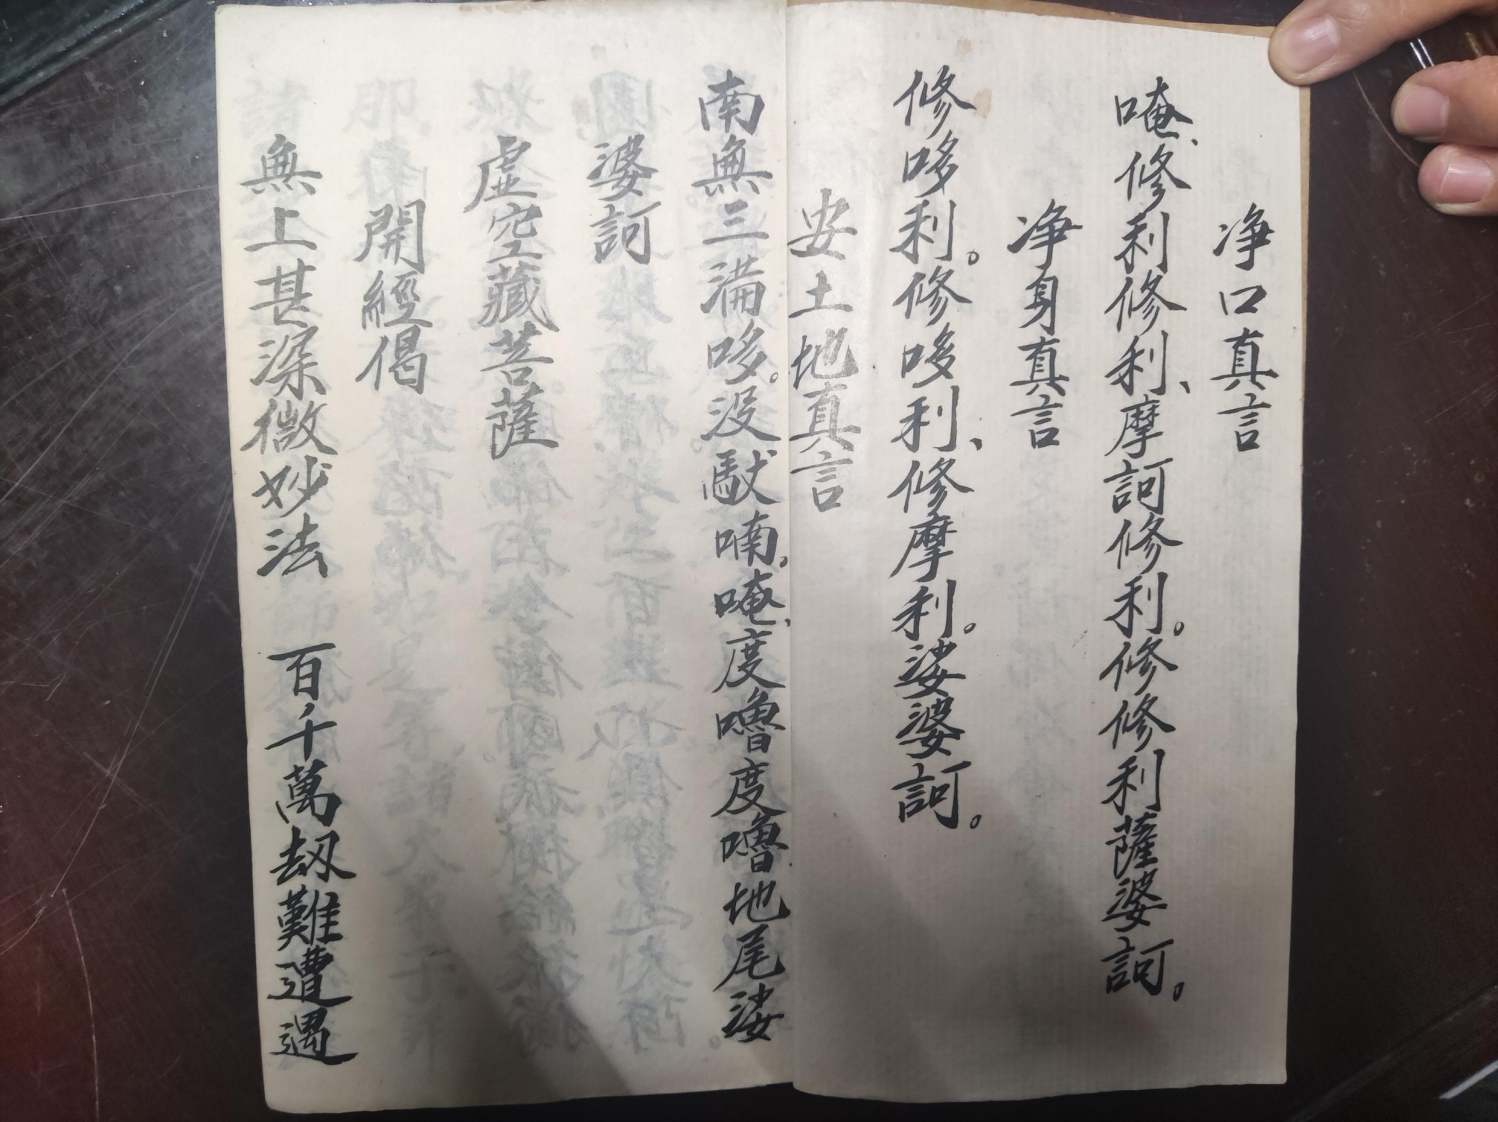 净口真言
唵、修利修利、摩訶修利。修修利薩婆訶。
净身真言
修哆利。修哆利、修摩利。娑婆訶。
安土地真言
南無三满哆。没馱喃。唵、度嚕度嚕地尾娑
婆訶
虛空藏菩薩
開經偈
無上甚深微妙法 百千萬劫難遭遇